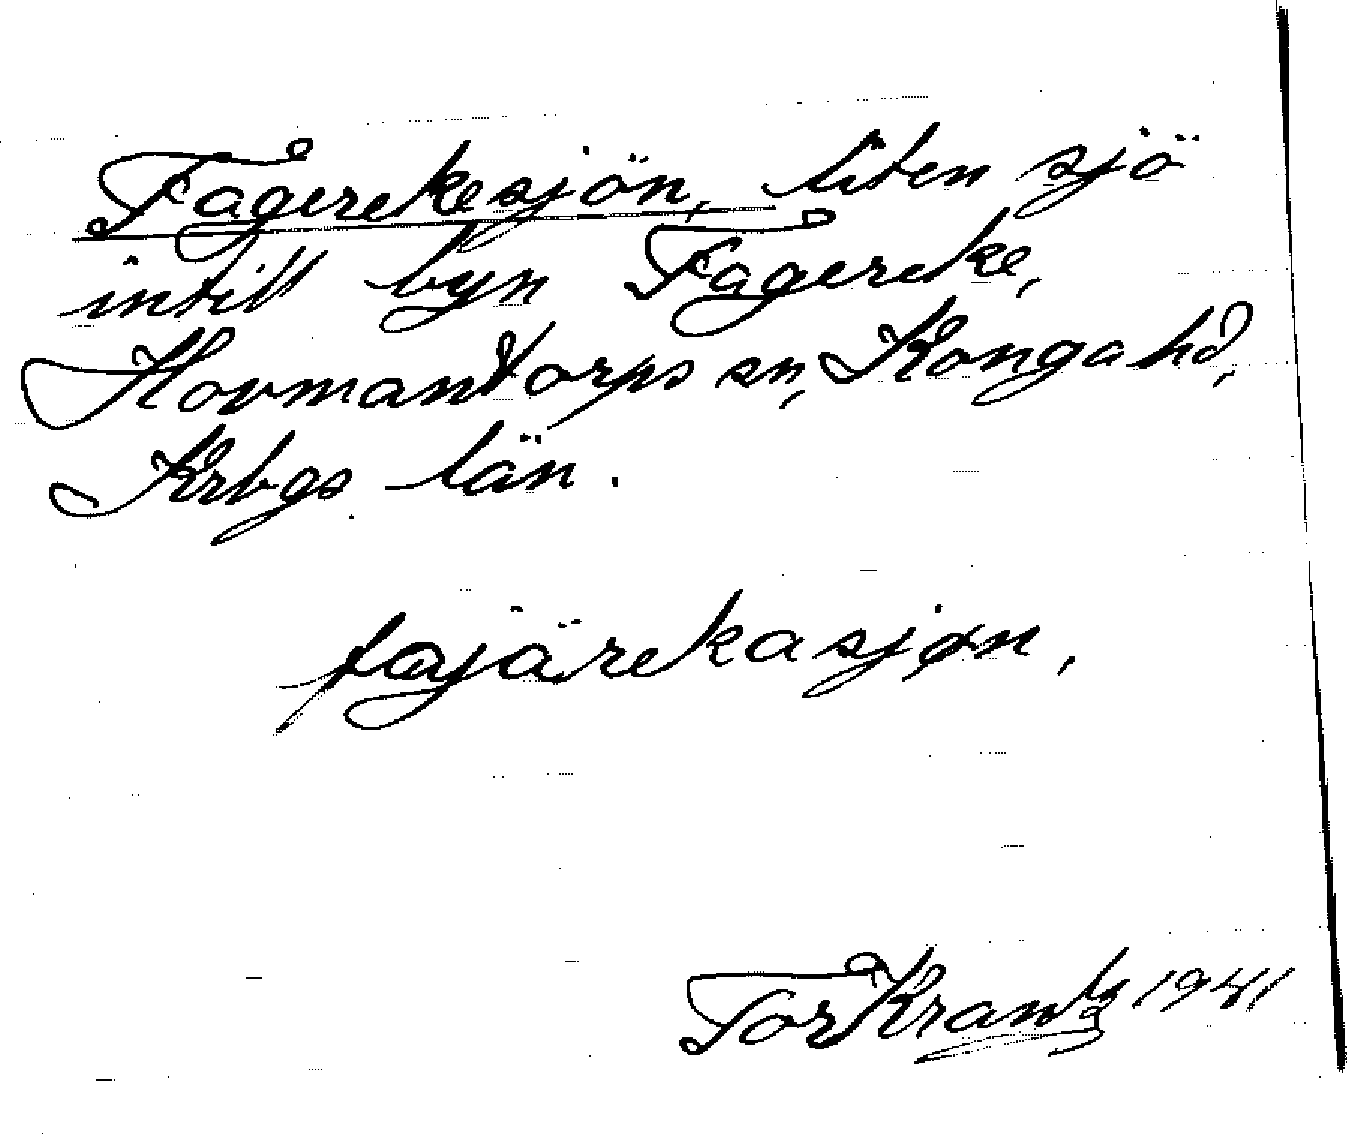 Fagerekesjön, liten sjö
intill byn Fagereke,
Hovmantorps sn, Konga hd,
Krbgs län.
fajärekasjøn,
Tor Krantz 1941